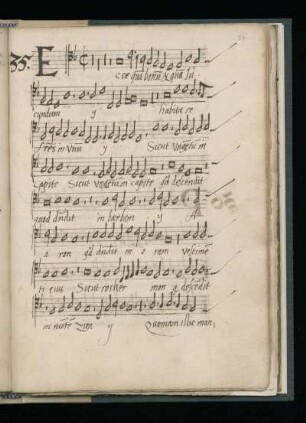 35. E
cce qua bonu & qua Iu
cundum y habita re
fres in vnu y Sicut Vngetu in
Capite Sicut Vngetu in capite qd descendit
quod dendit in barbam y A
a ron qd dendit in o ram vestime
ti eius Sicut ros her mon q descedit
in monte Zion y Quoniam illic man,